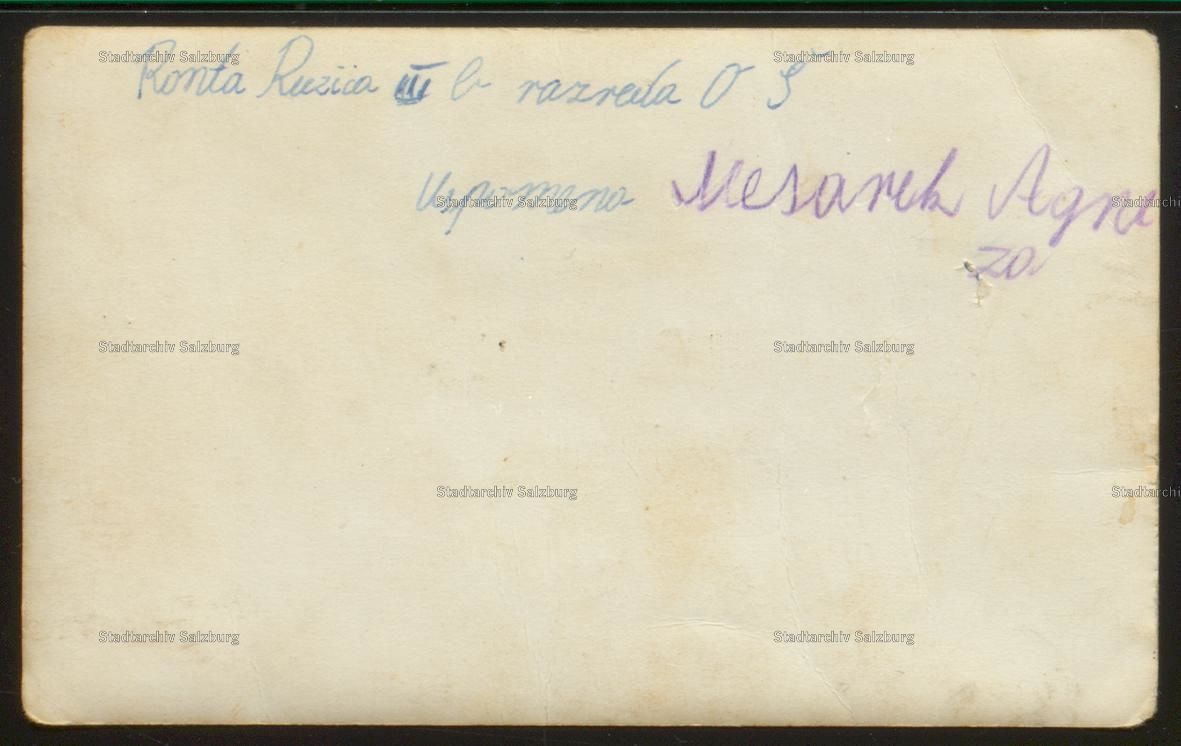 Ronta Ruzica III b razreda O Š
Uspomena Mesarek Agne
za
Stadtarchiv Salzburg Stadtarchiv Salzburg
Stadtarchiv Salzburg Stadtarchiv
Stadtarchiv Salzburg Stadtarchiv Salzburg
Stadtarchiv Salzburg Stadtarchiv
Stadtarchiv Salzburg Stadtarchiv Salzburg